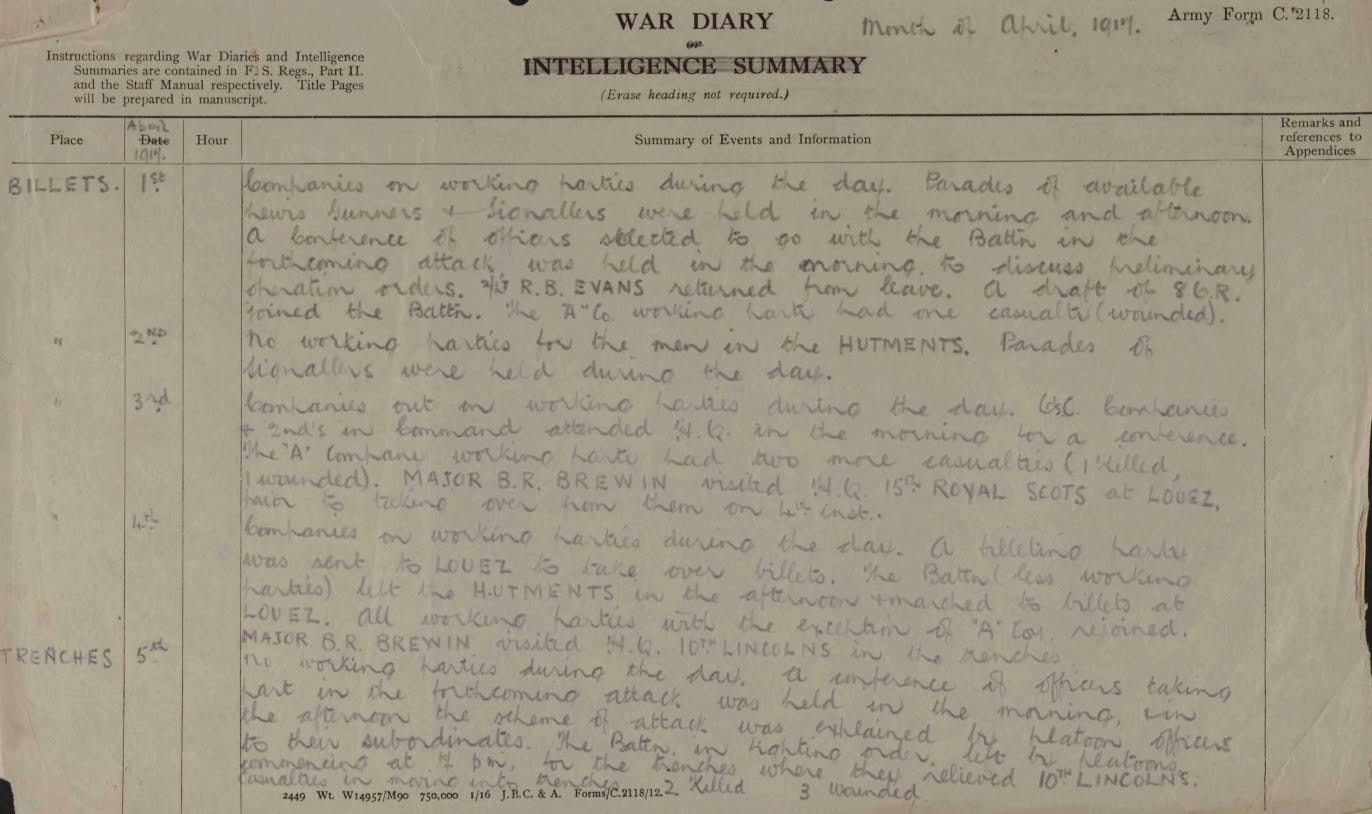 WAR DIARY
or
INTELLIGENCE SUMMARY
(Erase heading not required.)
Month of April, 1917.
Army Form C. 2118.
Instructions regarding War Diaries and Intelligence
Summaries are contained in F. S. Regs., Part II.
and the Staff Manual respectively. Title Pages
will be prepared in manuscript.
Place
April
Date
1917.
Hour
Summary of Events and Information
Remarks and
references to
Appendices
BILLETS. 1st Companies on working parties during the day. Parades of available
Lewis Gunners & Signallers were held in the morning and afternoon.
A Conference of officers selected to go with the Battn in the
forthcoming attack, was held in the morning, to discuss preliminary
operation orders. 2/Lt R.B. EVANS returned from leave. A draft of 8 O.R.
joined the Battn. The "A" Co. working party had one casualty (wounded).
" 2ND No working parties for the men in the HUTMENTS. Parades of
Signallers were held during the day.
" 3rd Companies out on working parties during the day. Companies
& 2nd's in Command attended H.Q. in the morning for a conference.
The "A" Company working party had two more casualties (1 Killed,
1 wounded). MAJOR B.R. BREWIN visited H.Q. 15th ROYAL SCOTS at LOUEZ,
prior to taking over from them on 4th inst.
" 4th Companies on working parties during the day. A billeting party
was sent to LOUEZ to take over billets. The Battn (less working
parties) left the HUTMENTS in the afternoon & marched to billets at
LOUEZ. All working parties with the exception of "A" Coy. rejoined.
MAJOR B.R. BREWIN visited H.Q. 10TH LINCOLNS in the trenches.
TRENCHES 5th No working parties during the day. A conference of officers taking
part in the forthcoming attack was held in the morning, & in
the afternoon the scheme of attack was explained by platoon officers
to their subordinates. The Battn. in fighting order, left by platoons,
commencing at 7 pm, for the trenches where they relieved 10TH LINCOLNS.
Casualties in moving into trenches 2 Killed 3 wounded
2449 Wt. W14957/M90 750,000 1/16 J.B.C. & A. Forms/C.2118/12.